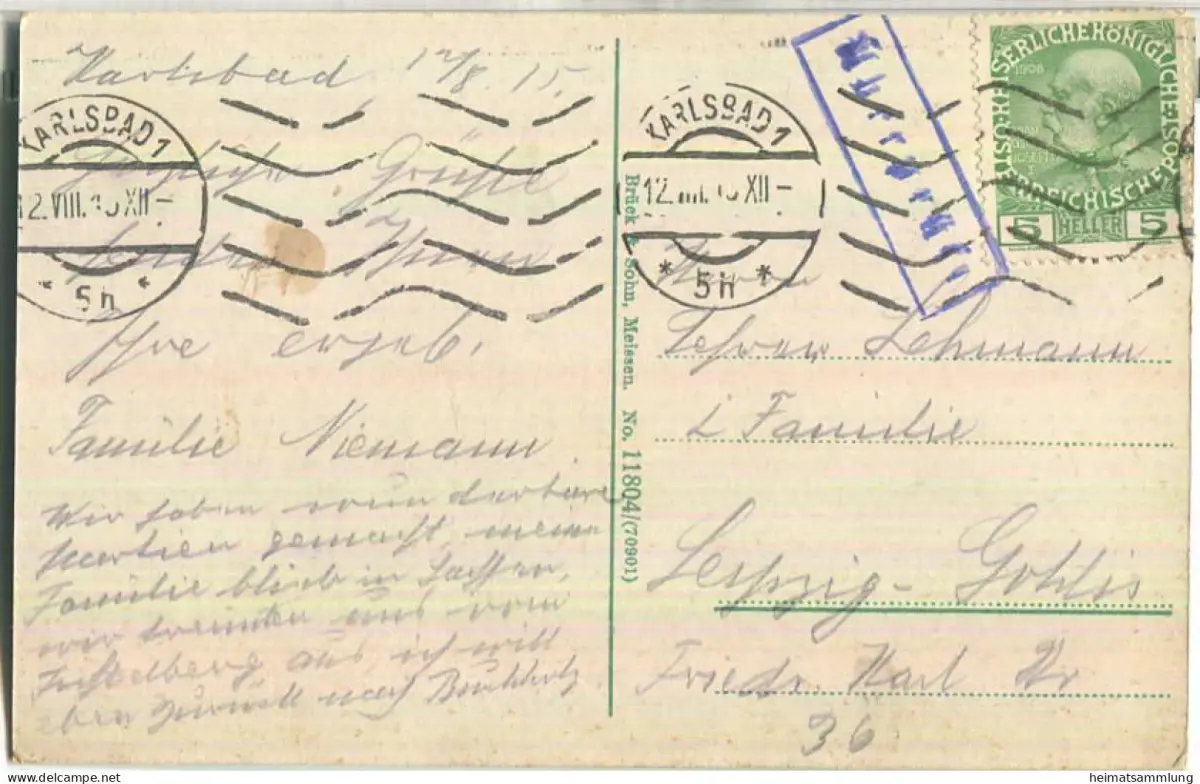 Karlsbad 12/8. 15.
Herzliche Grüße
sendet Ihnen
Ihre ergeb.
Familie Niemann
Wir haben wunderbare
Partien gemacht, meine
Familie blieb in Sachsen,
wir trennten uns vom
Fichtelberg aus, ich will
eben zurück nach Buchholz.
KARLSBAD 1
12.VIII.15 XII-
* 5h *
Brück & Sohn, Meissen. No. 11804/(70901)
KARLSBAD 1
12.VIII.15 XII-
* 5h *
Überprüft
KAISERLICHE KÖNIGLICHE ÖSTERREICHISCHE POST
1908
5 HELLER 5
Herrn
Lehrer Lehmann
& Familie
Leipzig-Gohlis
Friedr. Karl Str
36
heimatsammlung